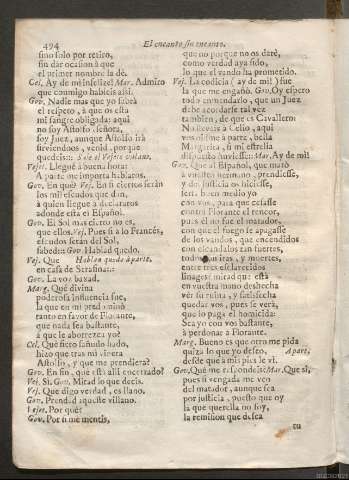 494
El encanto sin encanto.
sino solo por retiro,
sin dar ocasion à que
el primer nombre la dè.
Cel. Ay de mi infelize! Mar. Admiro
que conmigo hableis assi.
Gov. Nadie mas que yo sabrà
el respeto, à que os està
mi sangre obligada: aqui
no soy Astolfo, señora,
soy Juez, aunque Astolfo irà
sirviendoos, venid, porque
quedeis::- Sale el Vejete villano.
Vejet. Lleguè à buena hora:
A parte me importa hablaros.
Gov. En què? Vej. En si ciertos seràn
los mil escudos que dàn,
à quien llegue à declararos
adonde esta el Español.
Gov. El Sol mas cierto no es,
que ellos. Vej. Pues si a lo Francès,
escudos seràn del Sol,
sabed:: Gov. Hablad quedo.
Vej. Que Hablan quedo à parte.
en casa de Serafina::
Gov. La voz baxad.
Marg. Què divina
poderosa influencia fue,
la que en mi predominò
tanto en favor de Florante,
que nada sea bastante,
à que le aborrezca yo?
Cel. Què fiero sañudo hado,
hizo que tras mi viniera
Astolfo, y que me prendiera?
Gov. En fin, que està alli encerrado?
Vej. Si. Gov. Mirad lo que decis.
Vej. Que digo verdad, es llano.
Gov. Prended à queste villano.
Vejet. Por què?
Gov. Por si me mentis,
que porque no os darè,
como verdad aya sido,
lo que el vando ha prometido.
Vej. La codicia (ay de mi!) fue
la que me engañò. Gov. Oy espero
todo enmendarlo, que un Juez
debe acordarse tal vez
tambien, de que es Cavallero:
No lleveis à Celio, aqui
vos oidme à parte, bella
Margarita, si mi estrella
dispuso tuviesse:: Mar. Ay de mi!
Gov. Que al Español, que matò
à vuestro hermano, prendiesse,
y de justicia os hiciesse,
serà buen medio yo
con vos, para que cessasse
contra Florante el rencor,
pues èl no fue el matador,
con que el fuego se apagasse
de los vandos, que encendidos
con escandalos tan fuertes,
todo son iras, y muertes,
entre tres esclarecidos
linages? mirad que està
en vuestra mano deshecha
ver su ruina, y satisfecha
quedar vos, pues se verà,
que lo paga el homicida:
Sea yo con vos bastante,
à perdonar à Florante.
Marg. Bueno es que otro me pida
quizà lo que yo deseo, A part.
desde que à mis pies le vi.
Gov. Què me respondeis? Mar. Que si,
pues si vengada me veo
del matador, aunque sea
por justicia, puesto que oy
la que querella no soy,
la remision que desea
tu